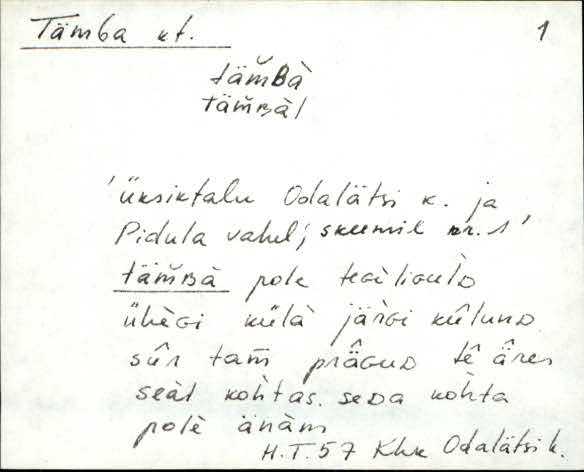 Tämba kt. 1
täm̆ʙà
täm̆ʙàl
'üksiktalu Odalätsi k. ja
Pidula vahel; skeemil nr. 1'
täm̆ʙà pole
ühèɢi külà järɢi kûlunᴅ
sûr tam̄ präɢuᴅ tê äres
seàl kohtas seᴅa kohta
polè änàm
H.T. 57 Khk Odalätsi k.